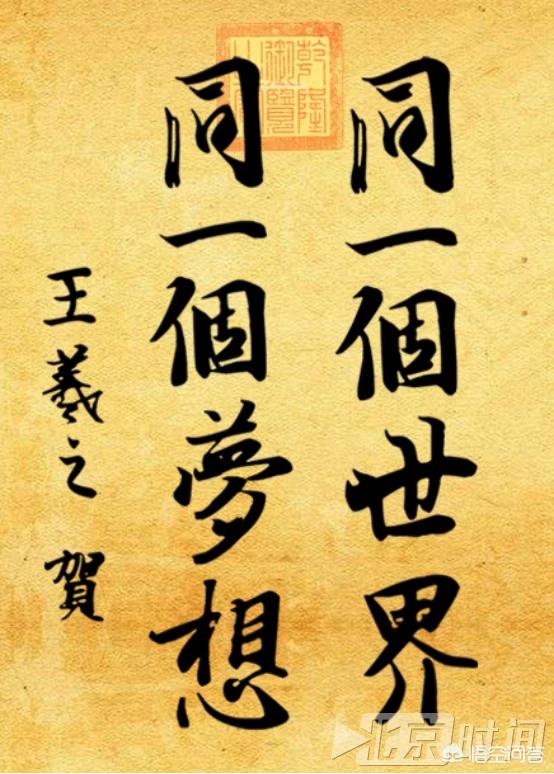 同一個世界
同一個夢想
王羲之 賀
乾隆御覽之寶
北京时间
悟空问答